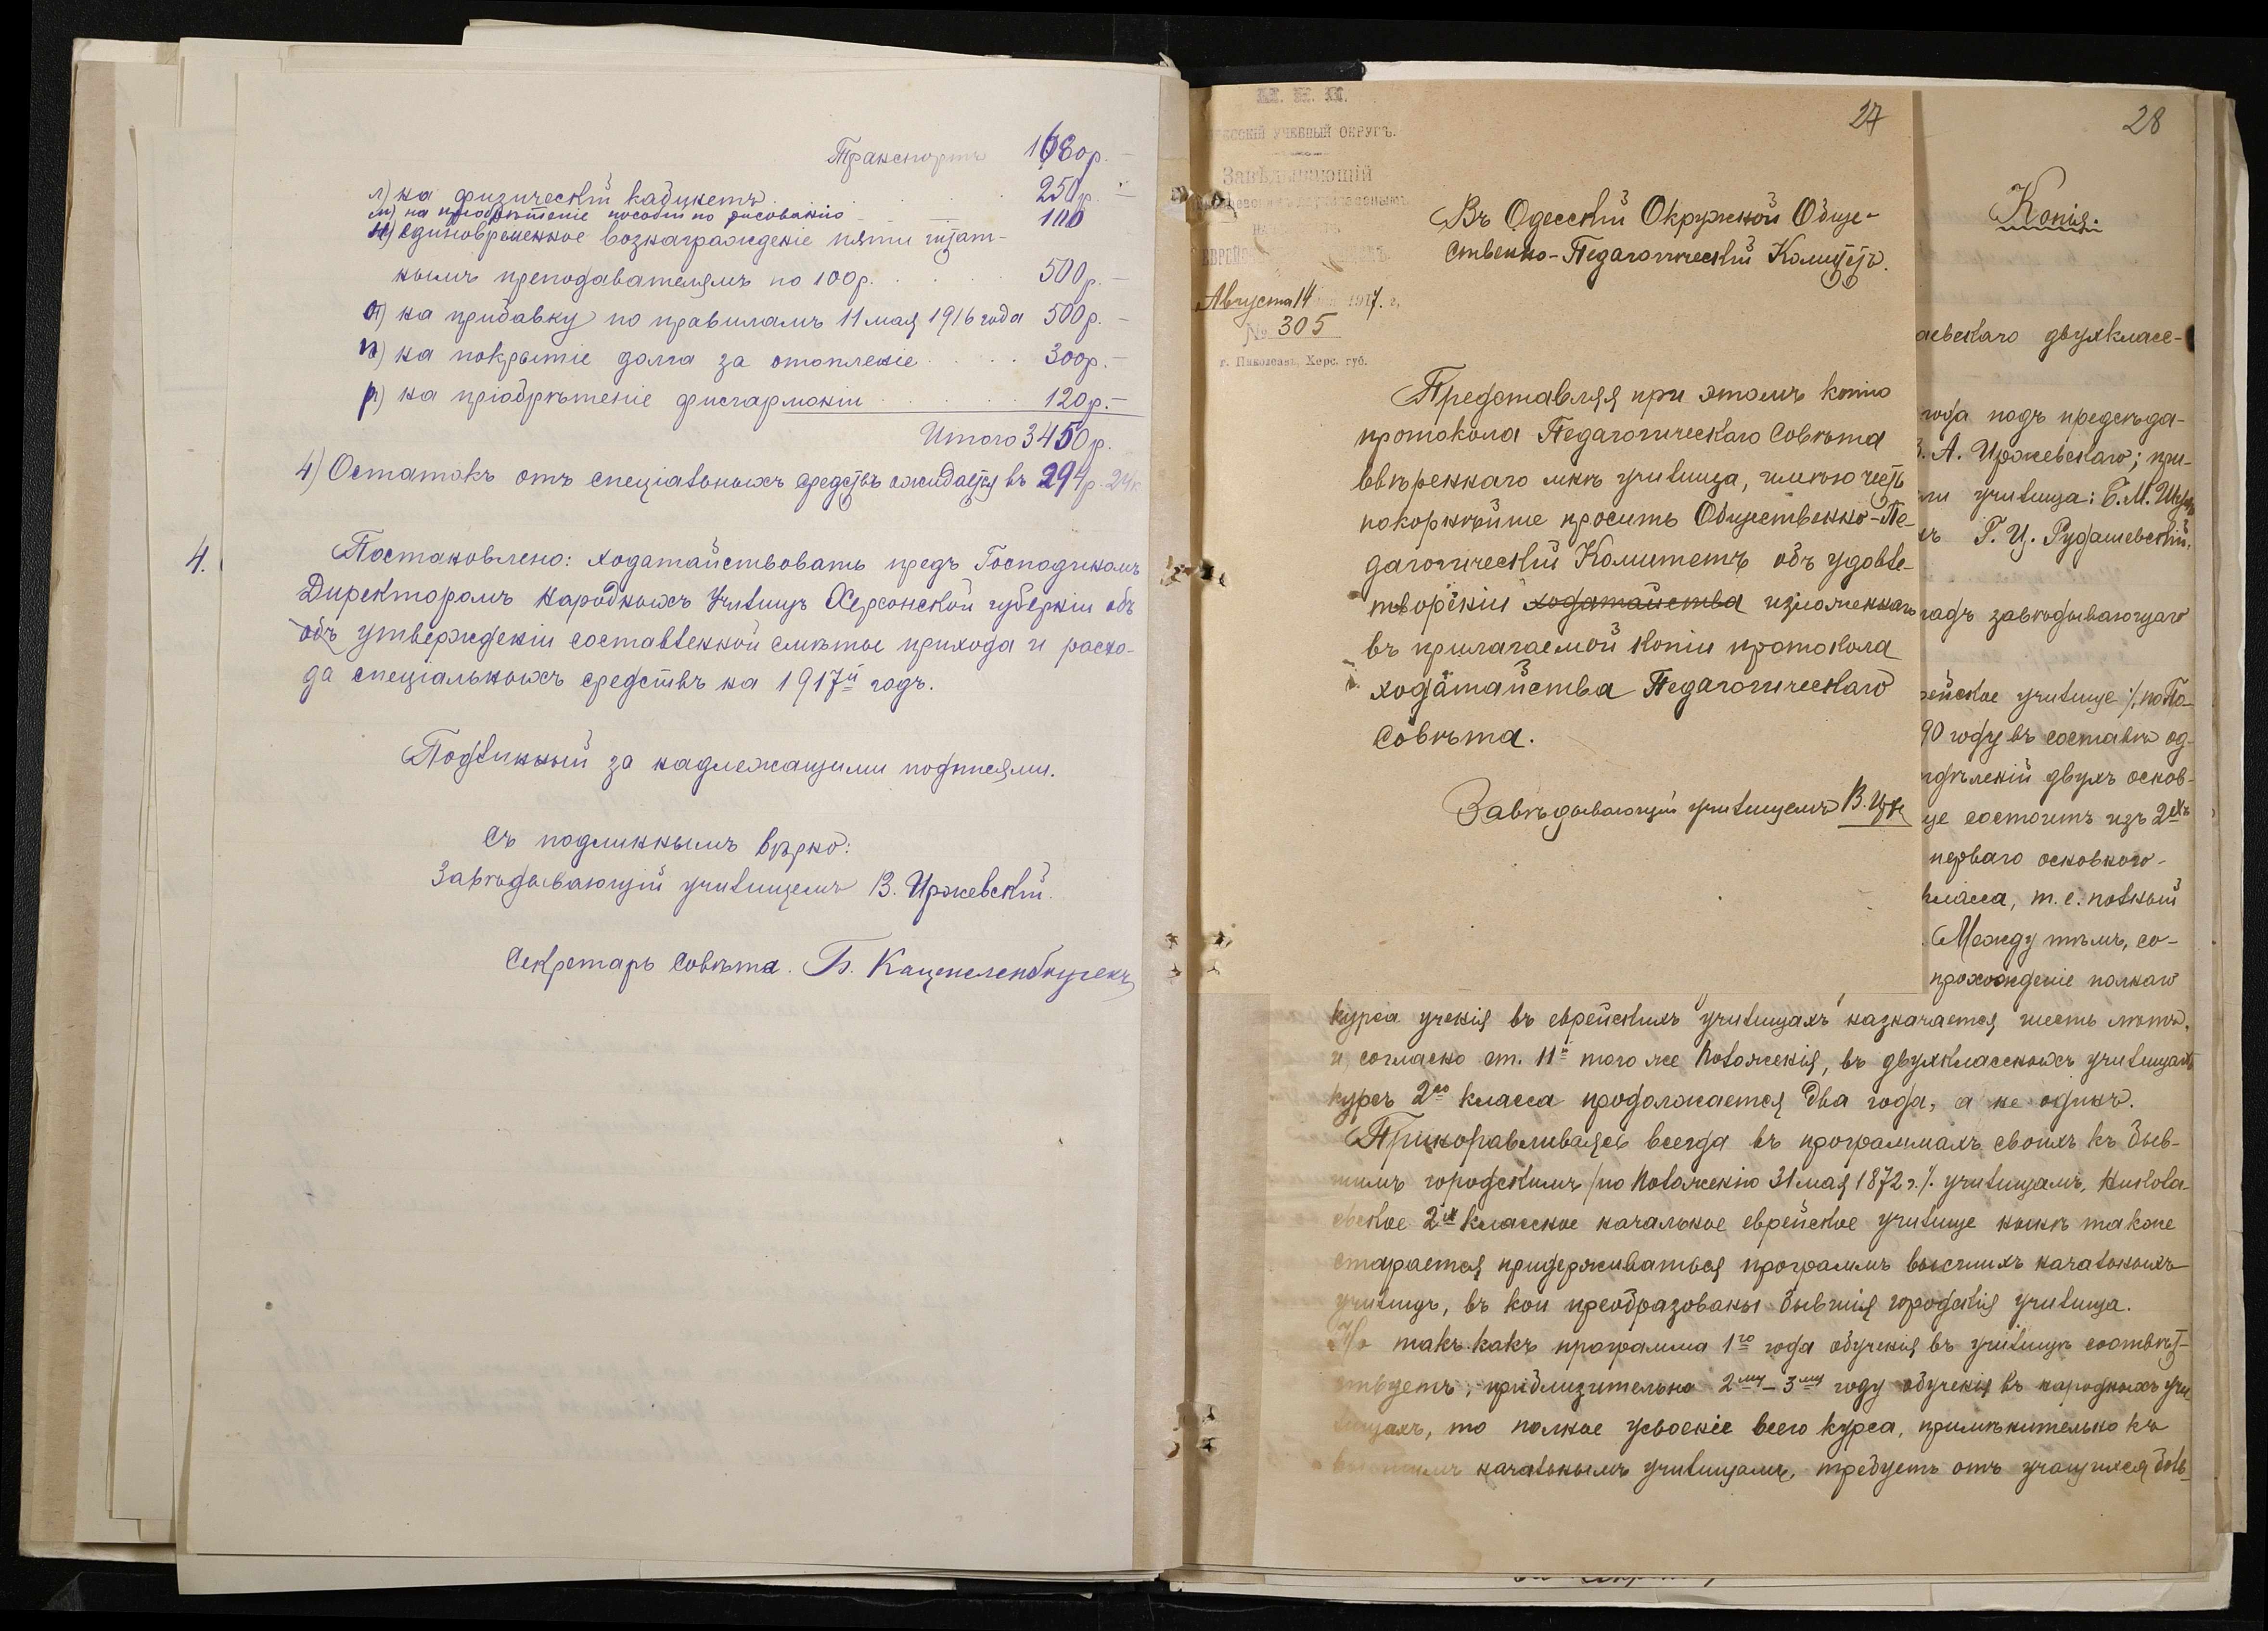 Транспортъ 1680р. –
л) на физическій кабинетъ 250р. –
м) на пріобрѣтеніе пособій по рисованію 100
н) единовременное вознагражденіе пяти штат-
нымъ преподавателямъ по 100р. 500р. –
о) на прибавку по правиламъ 11 мая 1916 года 500р. –
п) на покрытіе долга за отопленіе 300р. –
р) на пріобрѣтеніе фисгармоніи 120р. –
Итого 3450р.
4) Остатокъ отъ спеціальныхъ средствъ ожидается въ 294р. 24к
4. Постановлено: ходатайствовать предъ Господиномъ
Директоромъ Народныхъ Училищъ Херсонской губерніи объ
объ утвержденіи составленной смѣты прихода и расхо-
да спеціальныхъ средствъ на 1917й годъ.
Подлинный за надлежащими подписями.
Съ подлиннымъ вѣрно:
Завѣдывающій училищемъ В. Иржевскій.
Секретарь Совѣта. Б. Каценеленбугенъ
27
М. Н. П.
ОДЕССКІЙ УЧЕБНЫЙ ОКРУГЪ.
Завѣдывающій
Августа 14 дня 1917. г.
№ 305
г. Николаевъ, Херс. губ.
Въ Одесскій Окружной Обще-
ственно-Педагогическій Комитетъ.
Представляя при этомъ копію
протокола Педагогическаго Совѣта
ввѣреннаго мнѣ училища, имѣю честь
покорнѣйше просить Общественно-Пе-
дагогическій Комитетъ объ удовле-
твореніи ходатайства изложеннаго
въ прилагаемой копіи протокола
ходатайства Педагогическаго
Совѣта.
Завѣдывающій училищемъ
28
Копія.
аевскаго двухкласс-
года подъ предсѣда-
В. А. Иржевскаго; при-
ли училища: Б. М.
Г. Ц. Рудашевскій,
завѣдывающаго
ейское училище /по По-
90 году въ составѣ од-
дѣленій двухъ основ-
ще состоитъ изъ 2ухъ
перваго основного-
класса, т. е. полный
Между тѣмъ, со-
прохожденіе полнаго
курса ученія въ еврейскихъ училищахъ назначается шесть лѣтъ,
и, согласно ст. 11й того же Положенія, въ двухклассныхъ училищахъ
курсъ 2го класса продолжается два года, а не одинъ.
Приноравливаясь всегда въ программахъ своихъ къ быв-
шимъ городскимъ /по Положенію 31 мая 1872 г./ училищамъ, Никола-
евское 2ух классное начальное еврейское училище нынѣ также
старается придерживаться программъ высшихъ начальныхъ
училищъ, въ кои преобразованы бывшія городскія училища.
Но такъ какъ программа 1го года обученія въ училищѣ соотвѣт-
ствуетъ, приблизительно 2му – 3му году обученія въ народныхъ учи-
лищахъ, то полное усвоеніе всего курса, примѣнительно къ
высшимъ начальнымъ училищамъ, требуетъ отъ учащихся боль-